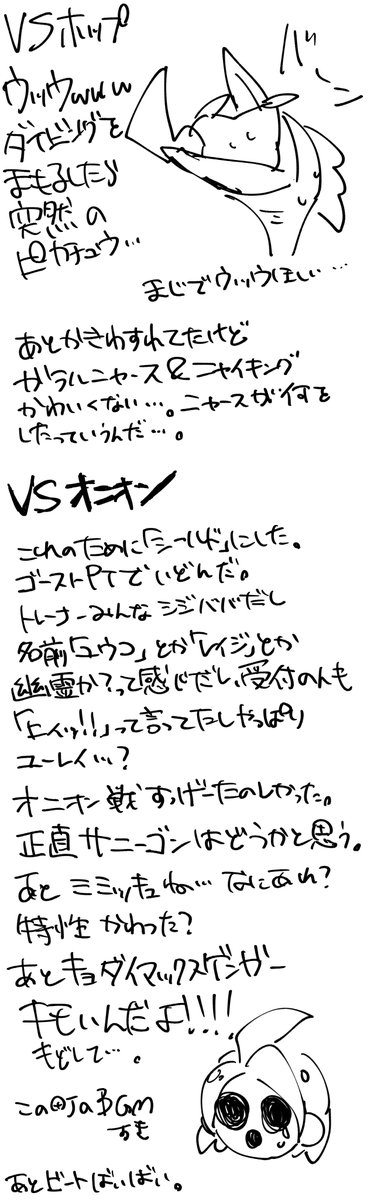 VSホップ
バーン
ウッウwww
ダイビングを
まもるしたら
突然の
ピカチュウ…
まじでウッウほしい…
あとかきわすれてたけど
ガラルニャース&ニャイキング
かわいくない…。ニャースが何を
したっていうんだ…。
VSオニオン
これのために「シールド」にした。
ゴーストPTでいどんだ。
トレーナーみんなジジババだし
名前「ユウコ」とか「レイジ」とか
幽霊か?って感じだし、受付の人も
「ヒィッ!!」って言ってたしやっぱり
ユーレイ…?
オニオン戦すっげーたのしかった。
正直サニーゴンはどうかと思う。
あとミミッキュね…なにあれ?
特性かわった?
あとキョダイマックスゲンガー
キモいんだよ!!!!
もどして…。
BGM
すき
あとビートばいばい。